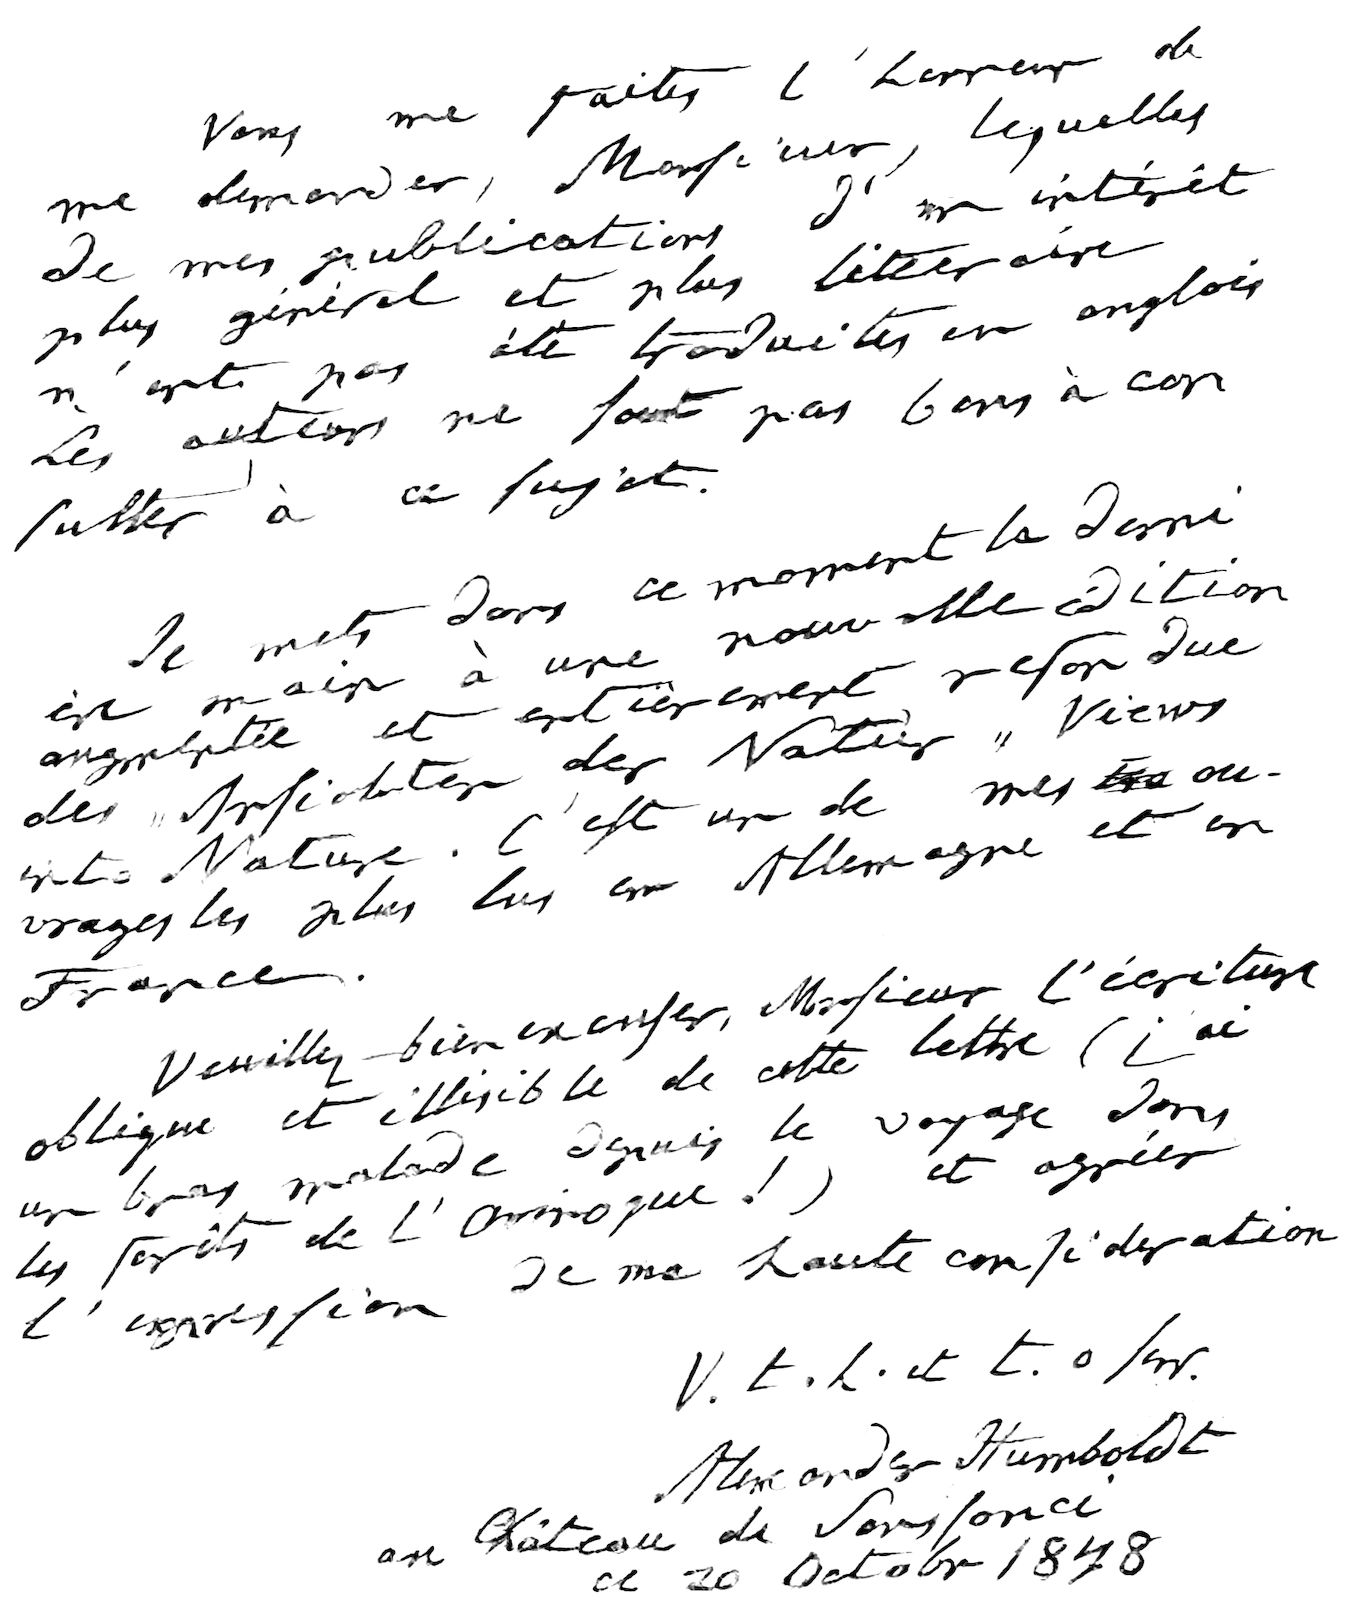 Vous me faites l'honneur de
me demander, Monsieur, lesquelles
de mes publications d'un intérêt
plus général et plus litteraire
n'ont pas été traduites en anglois
Les auteurs ne sont pas bons à con
sulter à ce sujet.
Je mets dans ce moment la derni
ère main à une nouvelle édition
augmentée et entièrement refondue
des „Ansichten der Natur„ Views
into Nature. C'est un de mes ou-
vrages les plus lus en Allemagne et en
France.
Veuillez bien excuser, Monsieur l'écriture
oblique et illisible de cette lettre (j'ai
un bras malade depuis le voyage dans
les forêts de l'Orinoque!) et agréer
l'expression de ma haute consideration
V. t. h. et t. o ser.
Alexander Humboldt
au Château de Sanssouci
ce 20 Octobr 1848